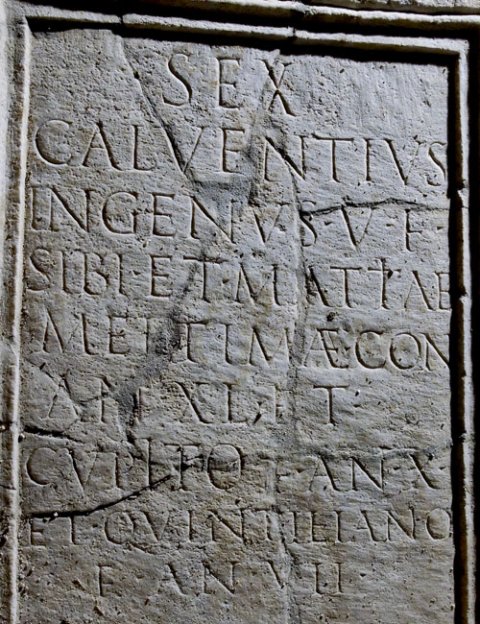 SEX
CALVENTIVS
INGENVS·V·F·
SIBI·ET·MATTAE
CON
AN XL ET
CVPITO F·AN·X·
ET QVINTILIANO
F AN VII